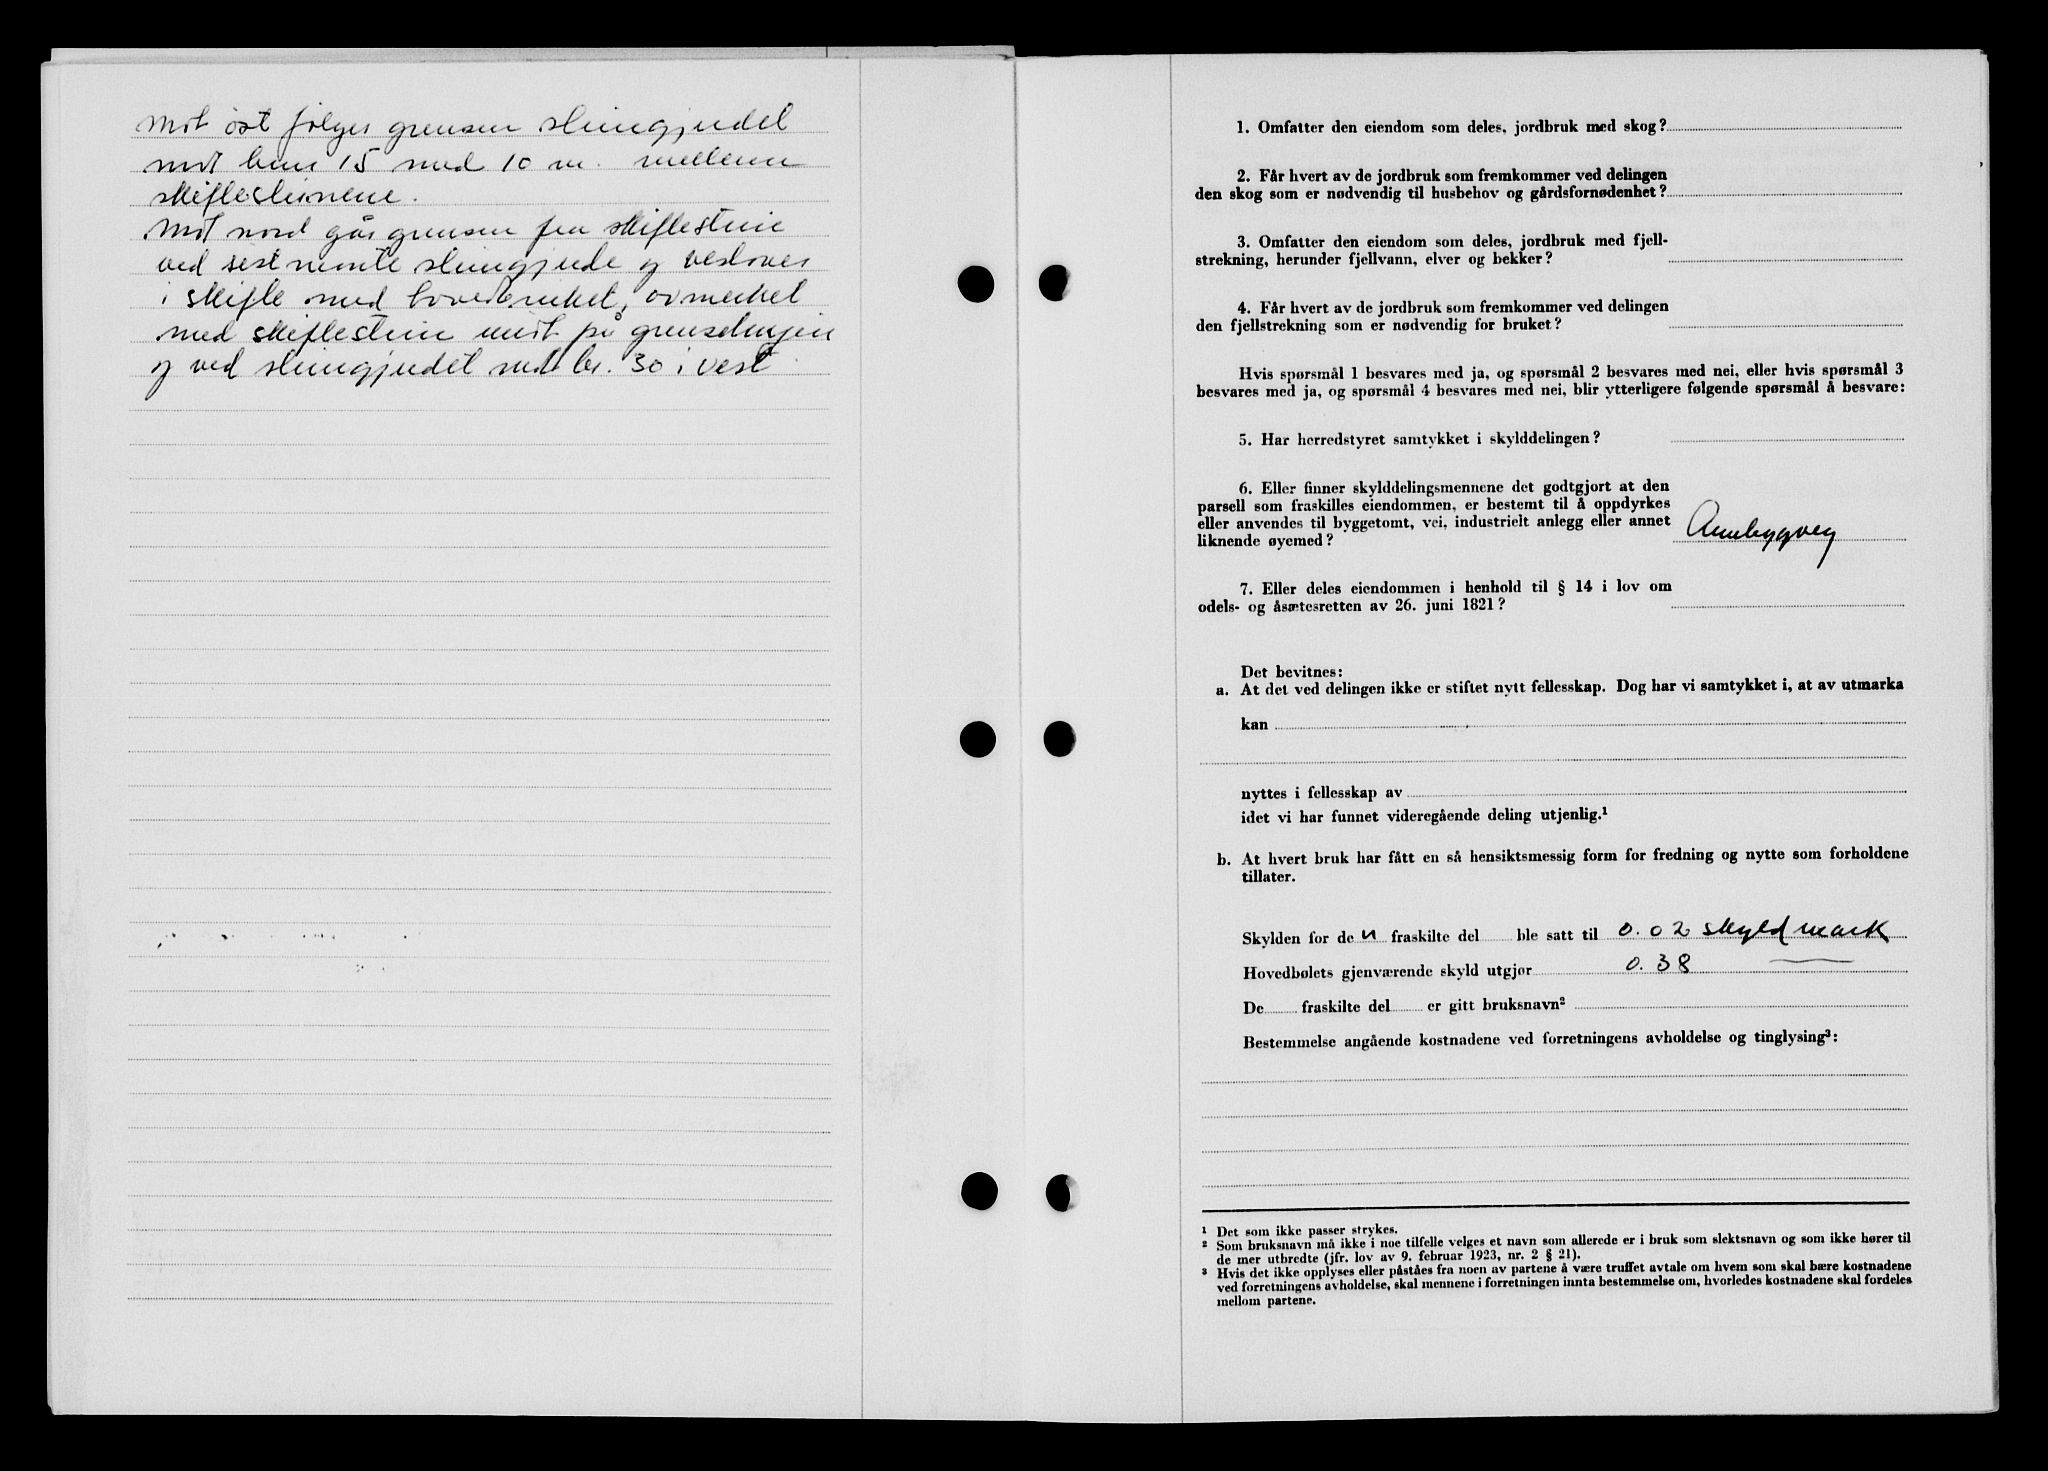 Mot øst følger grensen steingjerdet
mot br.nr 15 med 10 m. mellem
skiflesteinene.
Mot nord går grensen fra skiflestein
ved sist nemte steingjerde og vestover
i skifle med hovedbruket, avmerket
med skiflestein midt på grenselinjen
og ved steingjerdet mot br. 30 i vest.
1. Omfatter den eiendom som deles, jordbruk med skog?
2. Får hvert av de jordbruk som fremkommer ved delingen
den skog som er nødvendig til husbehov og gårdsfornødenhet?
3. Omfatter den eiendom som deles, jordbruk med fjell-
strekning, herunder fjellvann, elver og bekker?
4. Får hvert av de jordbruk som fremkommer ved delingen
den fjellstrekning som er nødvendig for bruket?
Hvis spørsmål 1 besvares med ja, og spørsmål 2 besvares med nei, eller hvis spørsmål 3
besvares med ja, og spørsmål 4 besvares med nei, blir ytterligere følgende spørsmål å besvare:
5. Har herredstyret samtykket i skylddelingen?
6. Eller finner skylddelingsmennene det godtgjort at den
parsell som fraskilles eiendommen, er bestemt til å oppdyrkes
eller anvendes til byggetomt, vei, industrielt anlegg eller annet
liknende øyemed?
7. Eller deles eiendommen i henhold til § 14 i lov om
odels- og åsætesretten av 26. juni 1821?
Det bevitnes:
a. At det ved delingen ikke er stiftet nytt fellesskap. Dog har vi samtykket i, at av utmarka
kan
nyttes i fellesskap av
idet vi har funnet videregående deling utjenlig.¹
b. At hvert bruk har fått en så hensiktsmessig form for fredning og nytte som forholdene
tillater.
Skylden for den fraskilte del ble satt til 0.02 skyldmark
Hovedbølets gjenværende skyld utgjør 0.38
De fraskilte del er gitt bruksnavn²
Bestemmelse angående kostnadene ved forretningens avholdelse og tinglysing³:
¹ Det som ikke passer strykes.
² Som bruksnavn må ikke i noe tilfelle velges et navn som allerede er i bruk som slektsnavn og som ikke hører til
de mer utbredte (jfr. lov av 9. februar 1923, nr. 2 § 21).
³ Hvis det ikke opplyses eller påståes fra noen av partene å være truffet avtale om hvem som skal bære kostnadene
ved forretningens avholdelse, skal mennene i forretningen innta bestemmelse om, hvorledes kostnadene skal fordeles
mellom partene.